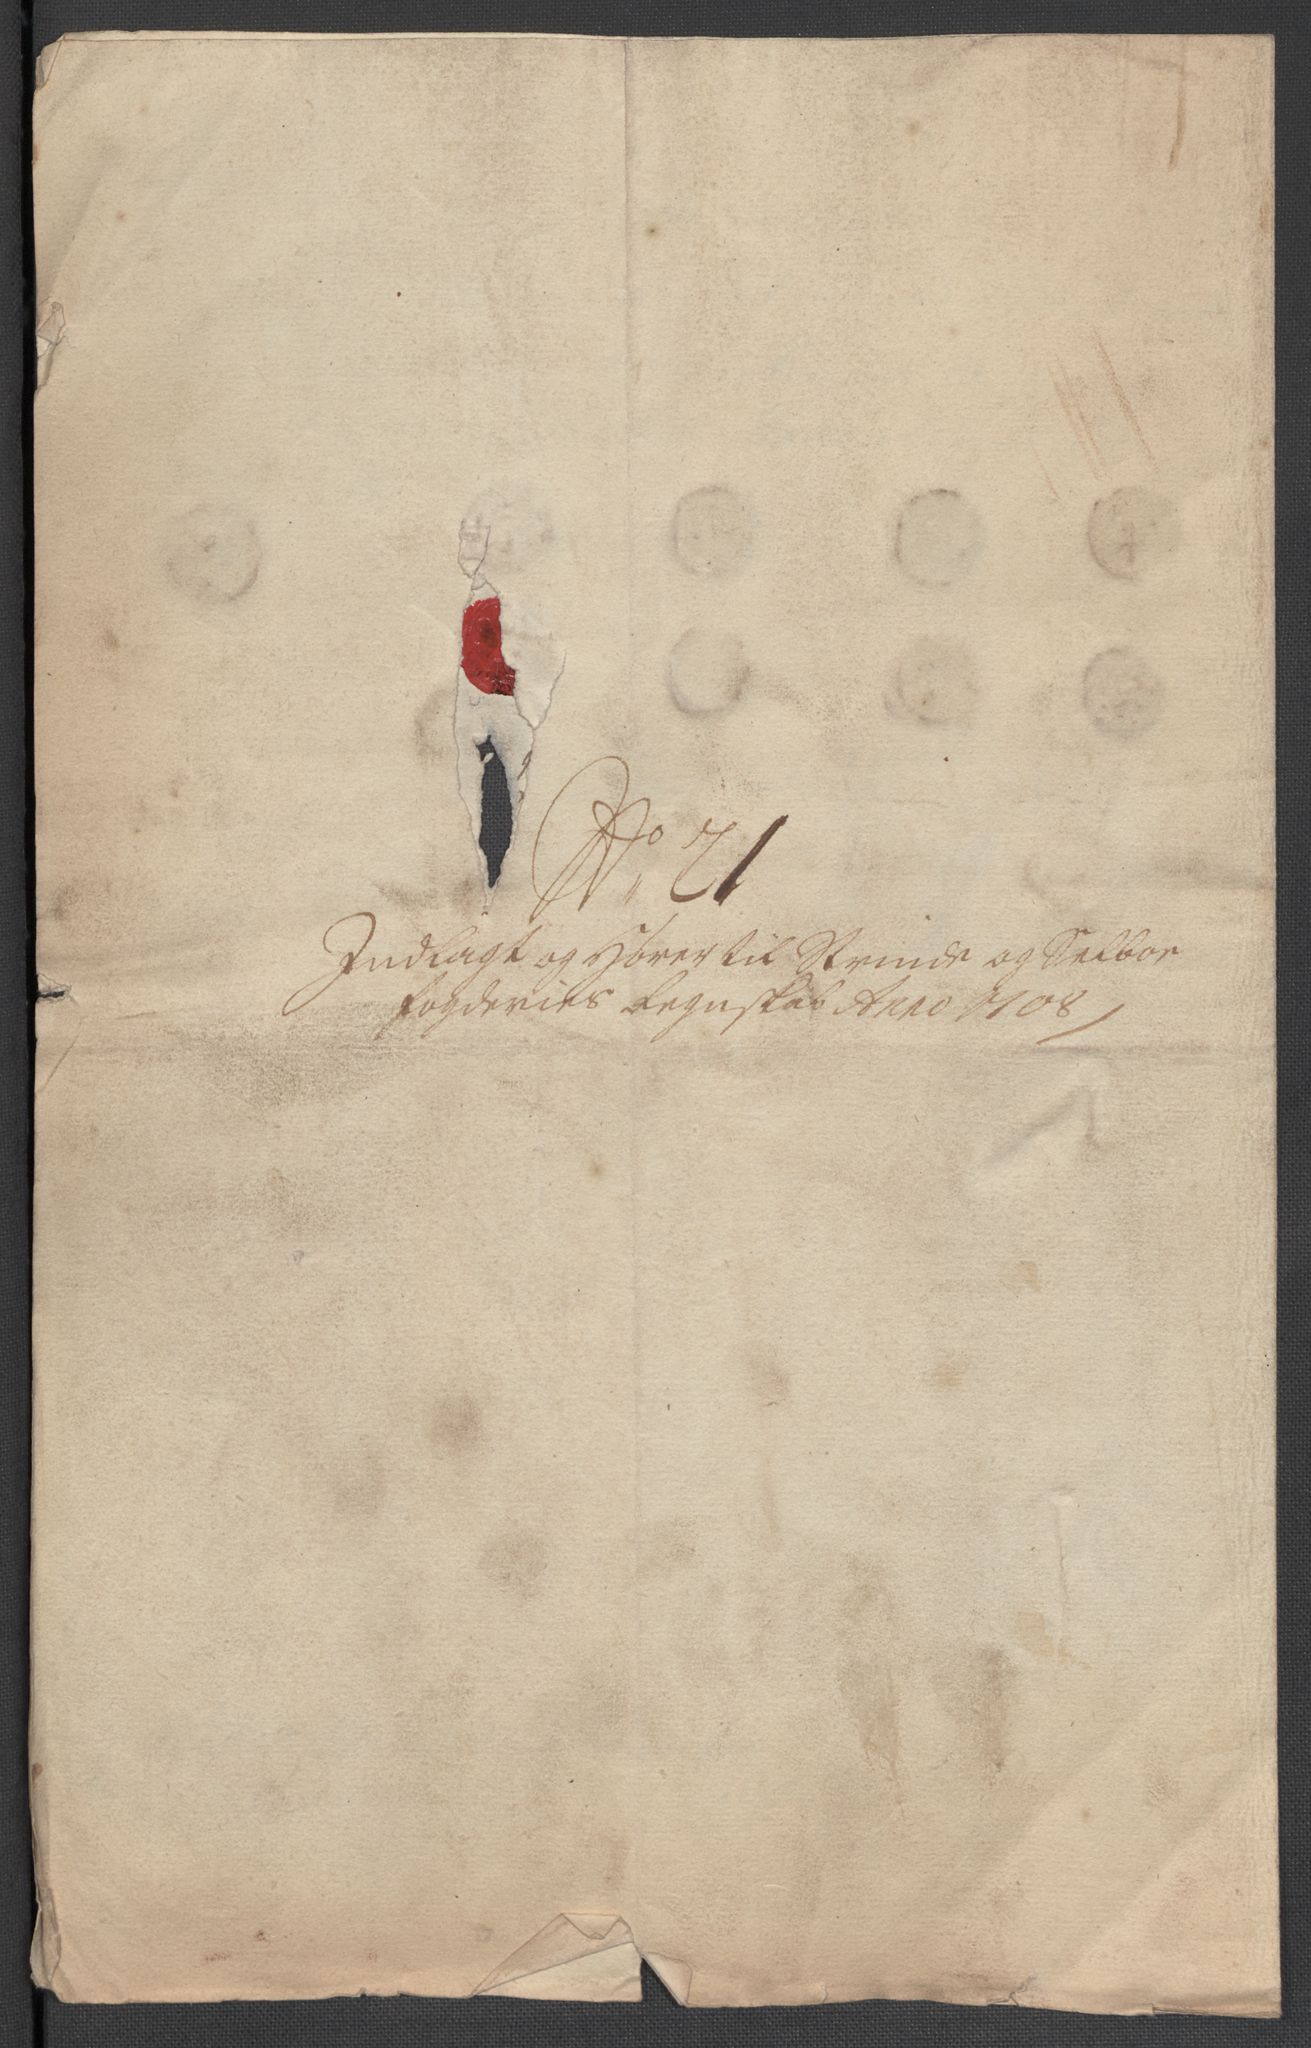 No: 21
Indlagt og Hörer til Strinde og Selboe
fogderies Regnskab Anno 1708